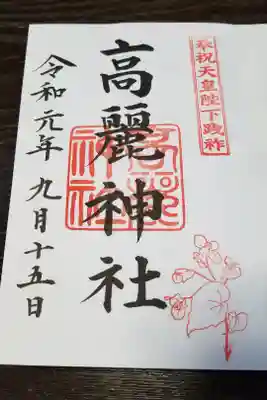 奉祝天皇陛下践祚
高麗神社
高麗神社
令和元年九月十五日